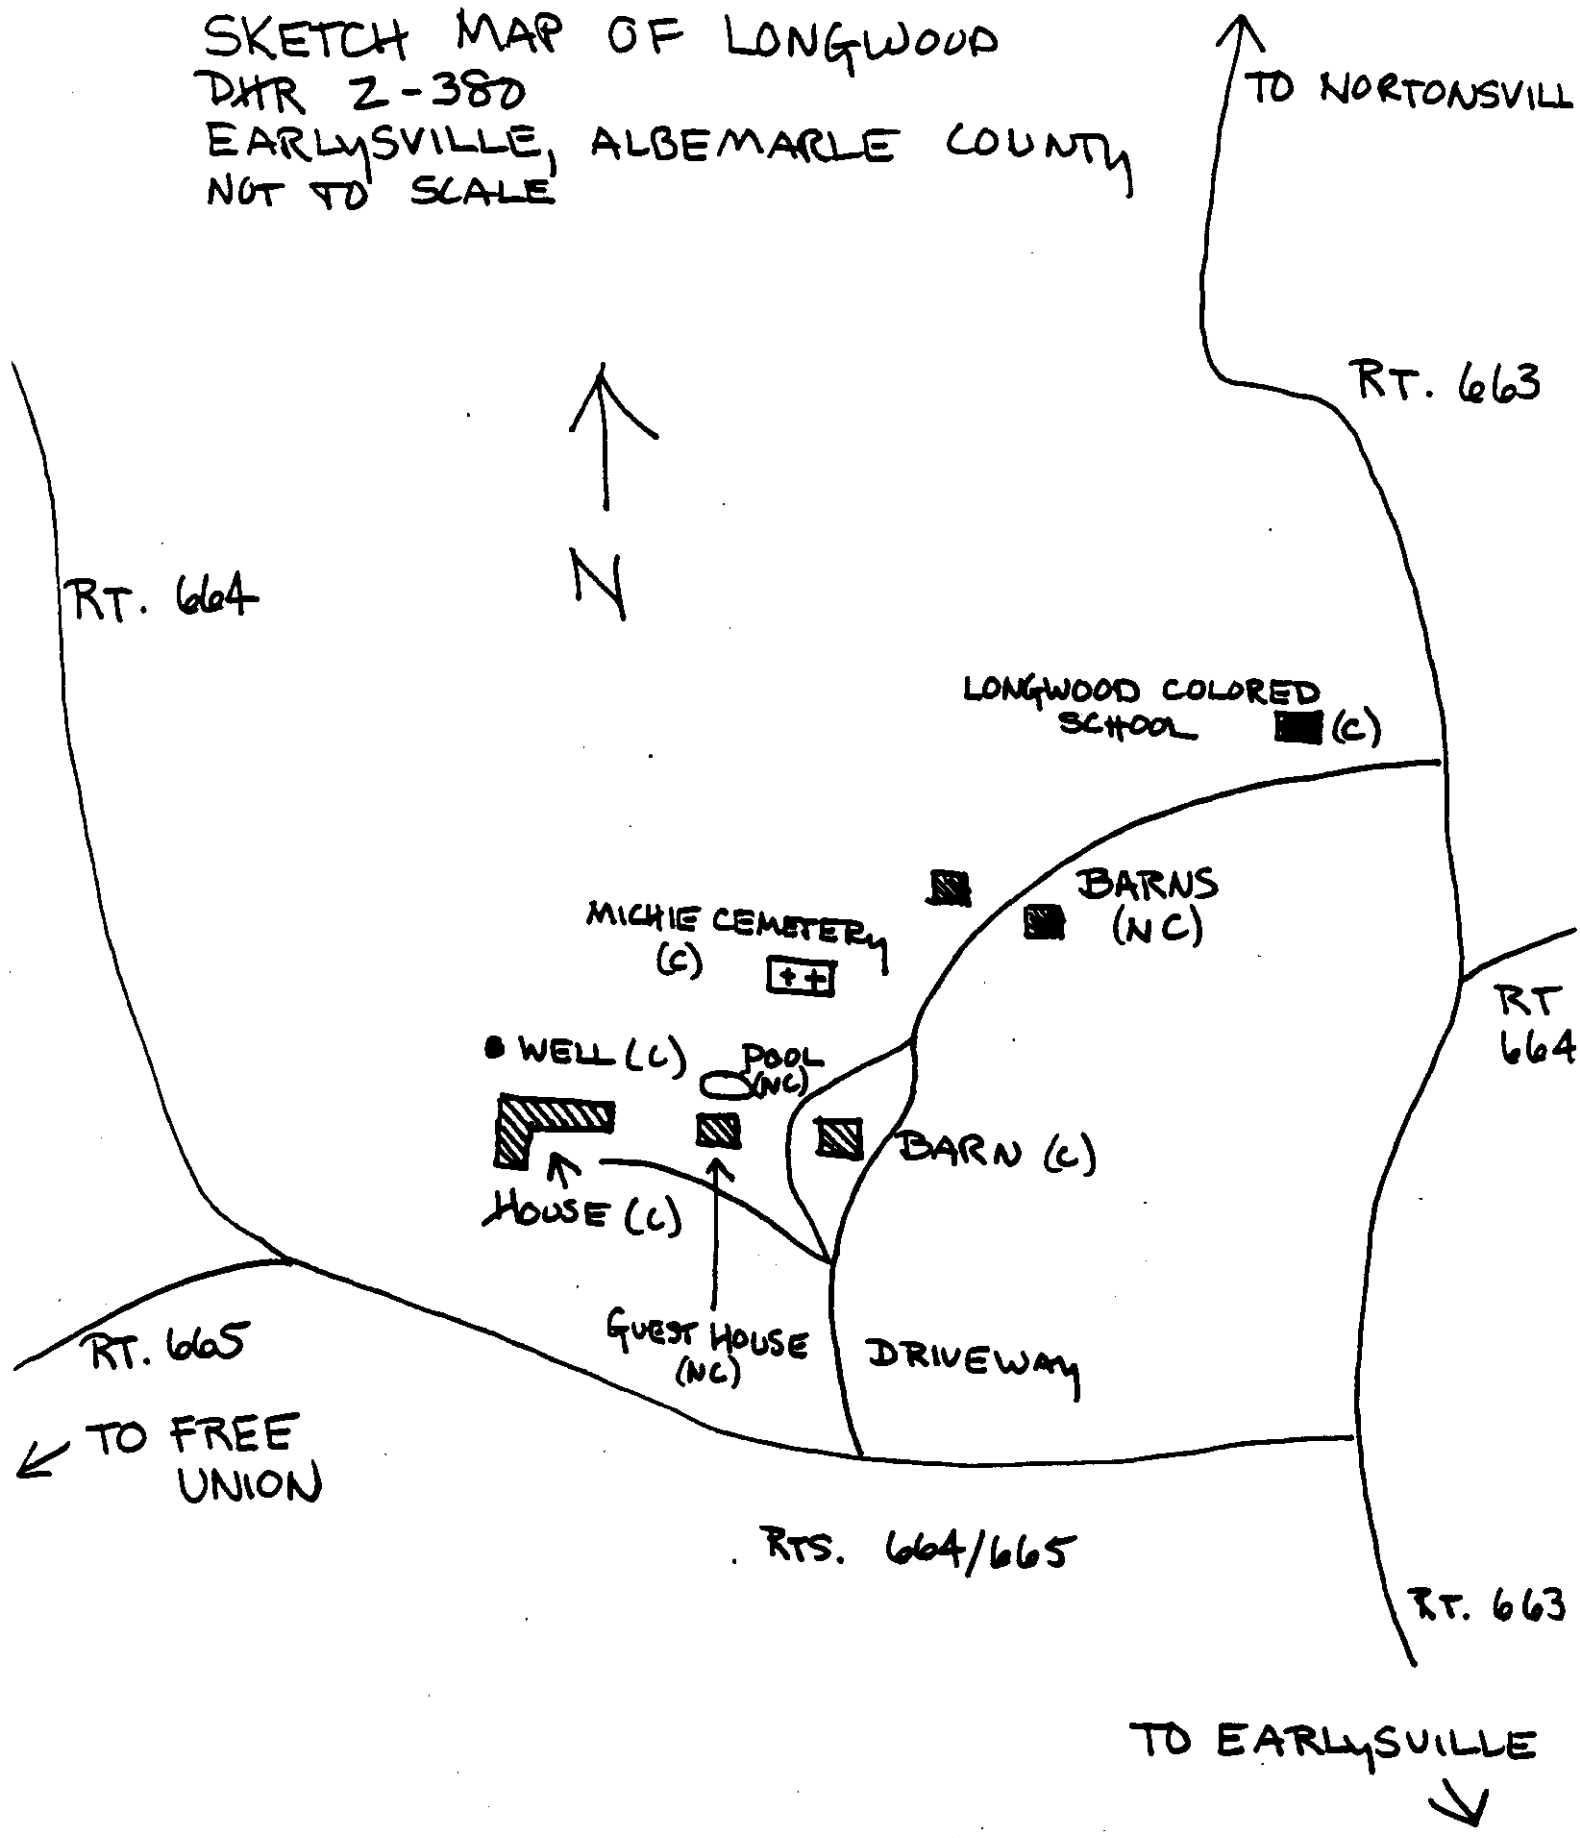 SKETCH MAP OF LONGWOOD
DHR 2-380
EARLYSVILLE, ALBEMARLE COUNTY
NOT TO SCALE
TO NORTONSVILL
RT. 663
N
RT. 664
LONGWOOD COLORED
SCHOOL (C)
BARNS
(NC)
MICHIE CEMETERY
(C)
++
RT
664
WELL (C)
POOL
(NC)
BARN (C)
HOUSE (C)
GUEST HOUSE
(NC)
DRIVEWAY
RT. 665
TO FREE
UNION
RTS. 664/665
RT. 663
TO EARLYSVILLE